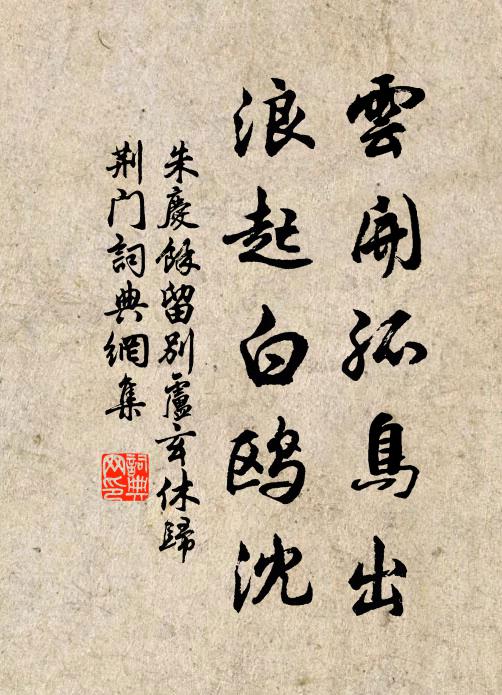 雲開孤鳥出
浪起白鷗沈
朱慶餘留別盧玄休歸
荆门詞典網集
詞典網印